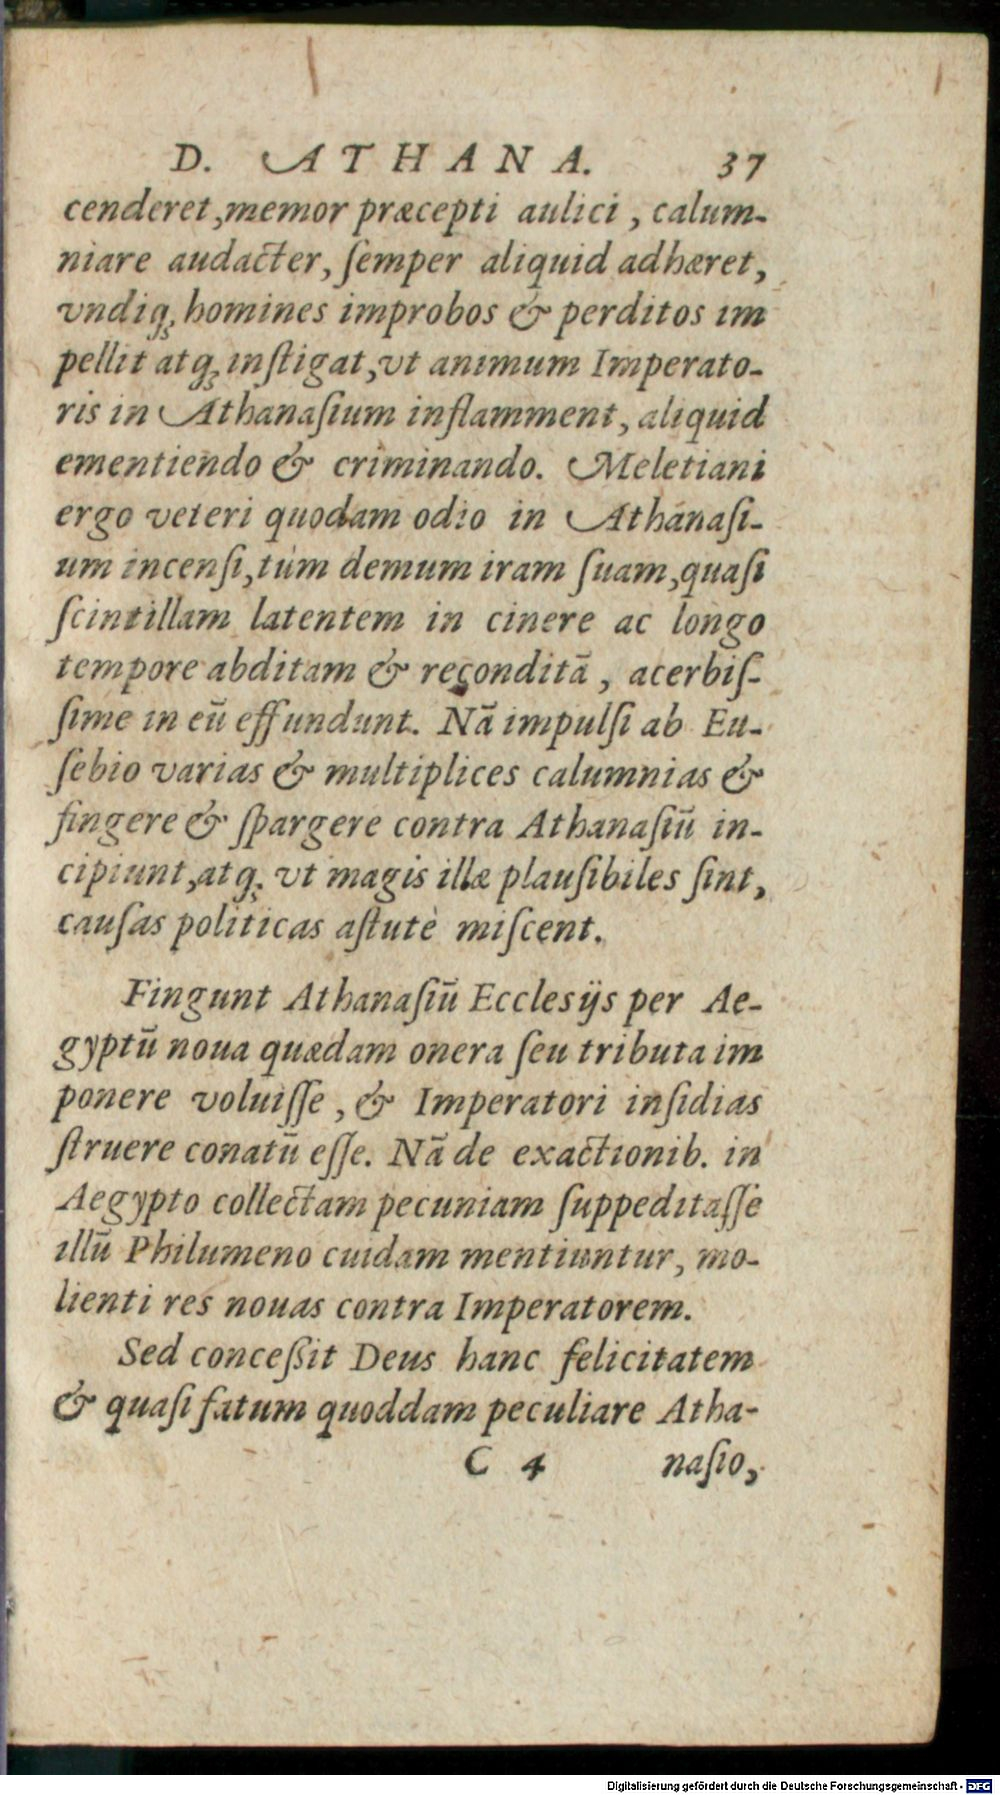 D. ATHANA. 37
cenderet, memor præcepti aulici, calum-
niare audacter, ſemper aliquid adhæret,
vndiq; homines improbos & perditos im
pellit atq; inſtigat, vt animum Imperato-
ris in Athanaſium inflamment, aliquid
ementiendo & criminando. Meletiani
ergo veteri quodam odio in Athanaſi-
um incenſi, tùm demum iram ſuam, quaſi
ſcintillam latentem in cinere ac longo
tempore abditam & reconditā, acerbiſ-
ſime in eū effundunt. Nā impulſi ab Eu-
ſebio varias & multiplices calumnias &
fingere & ſpargere contra Athanaſiū in-
cipiunt, atq; vt magis illæ plauſibiles ſint,
cauſas politicas aſtutè miſcent.
Fingunt Athanaſiū Ecclesijs per Ae-
gyptū noua quædam onera ſeu tributa im
ponere voluiſſe, & Imperatori inſidias
ſtruere conatū eſſe. Nā de exactionib. in
Aegypto collectam pecuniam ſuppeditaſſe
illū Philumeno cuidam mentiuntur, mo-
lienti res nouas contra Imperatorem.
Sed conceßit Deus hanc felicitatem
& quaſi fatum quoddam peculiare Atha-
C 4 naſio,
Digitalisierung gefördert durch die Deutsche Forschungsgemeinschaft - DFG